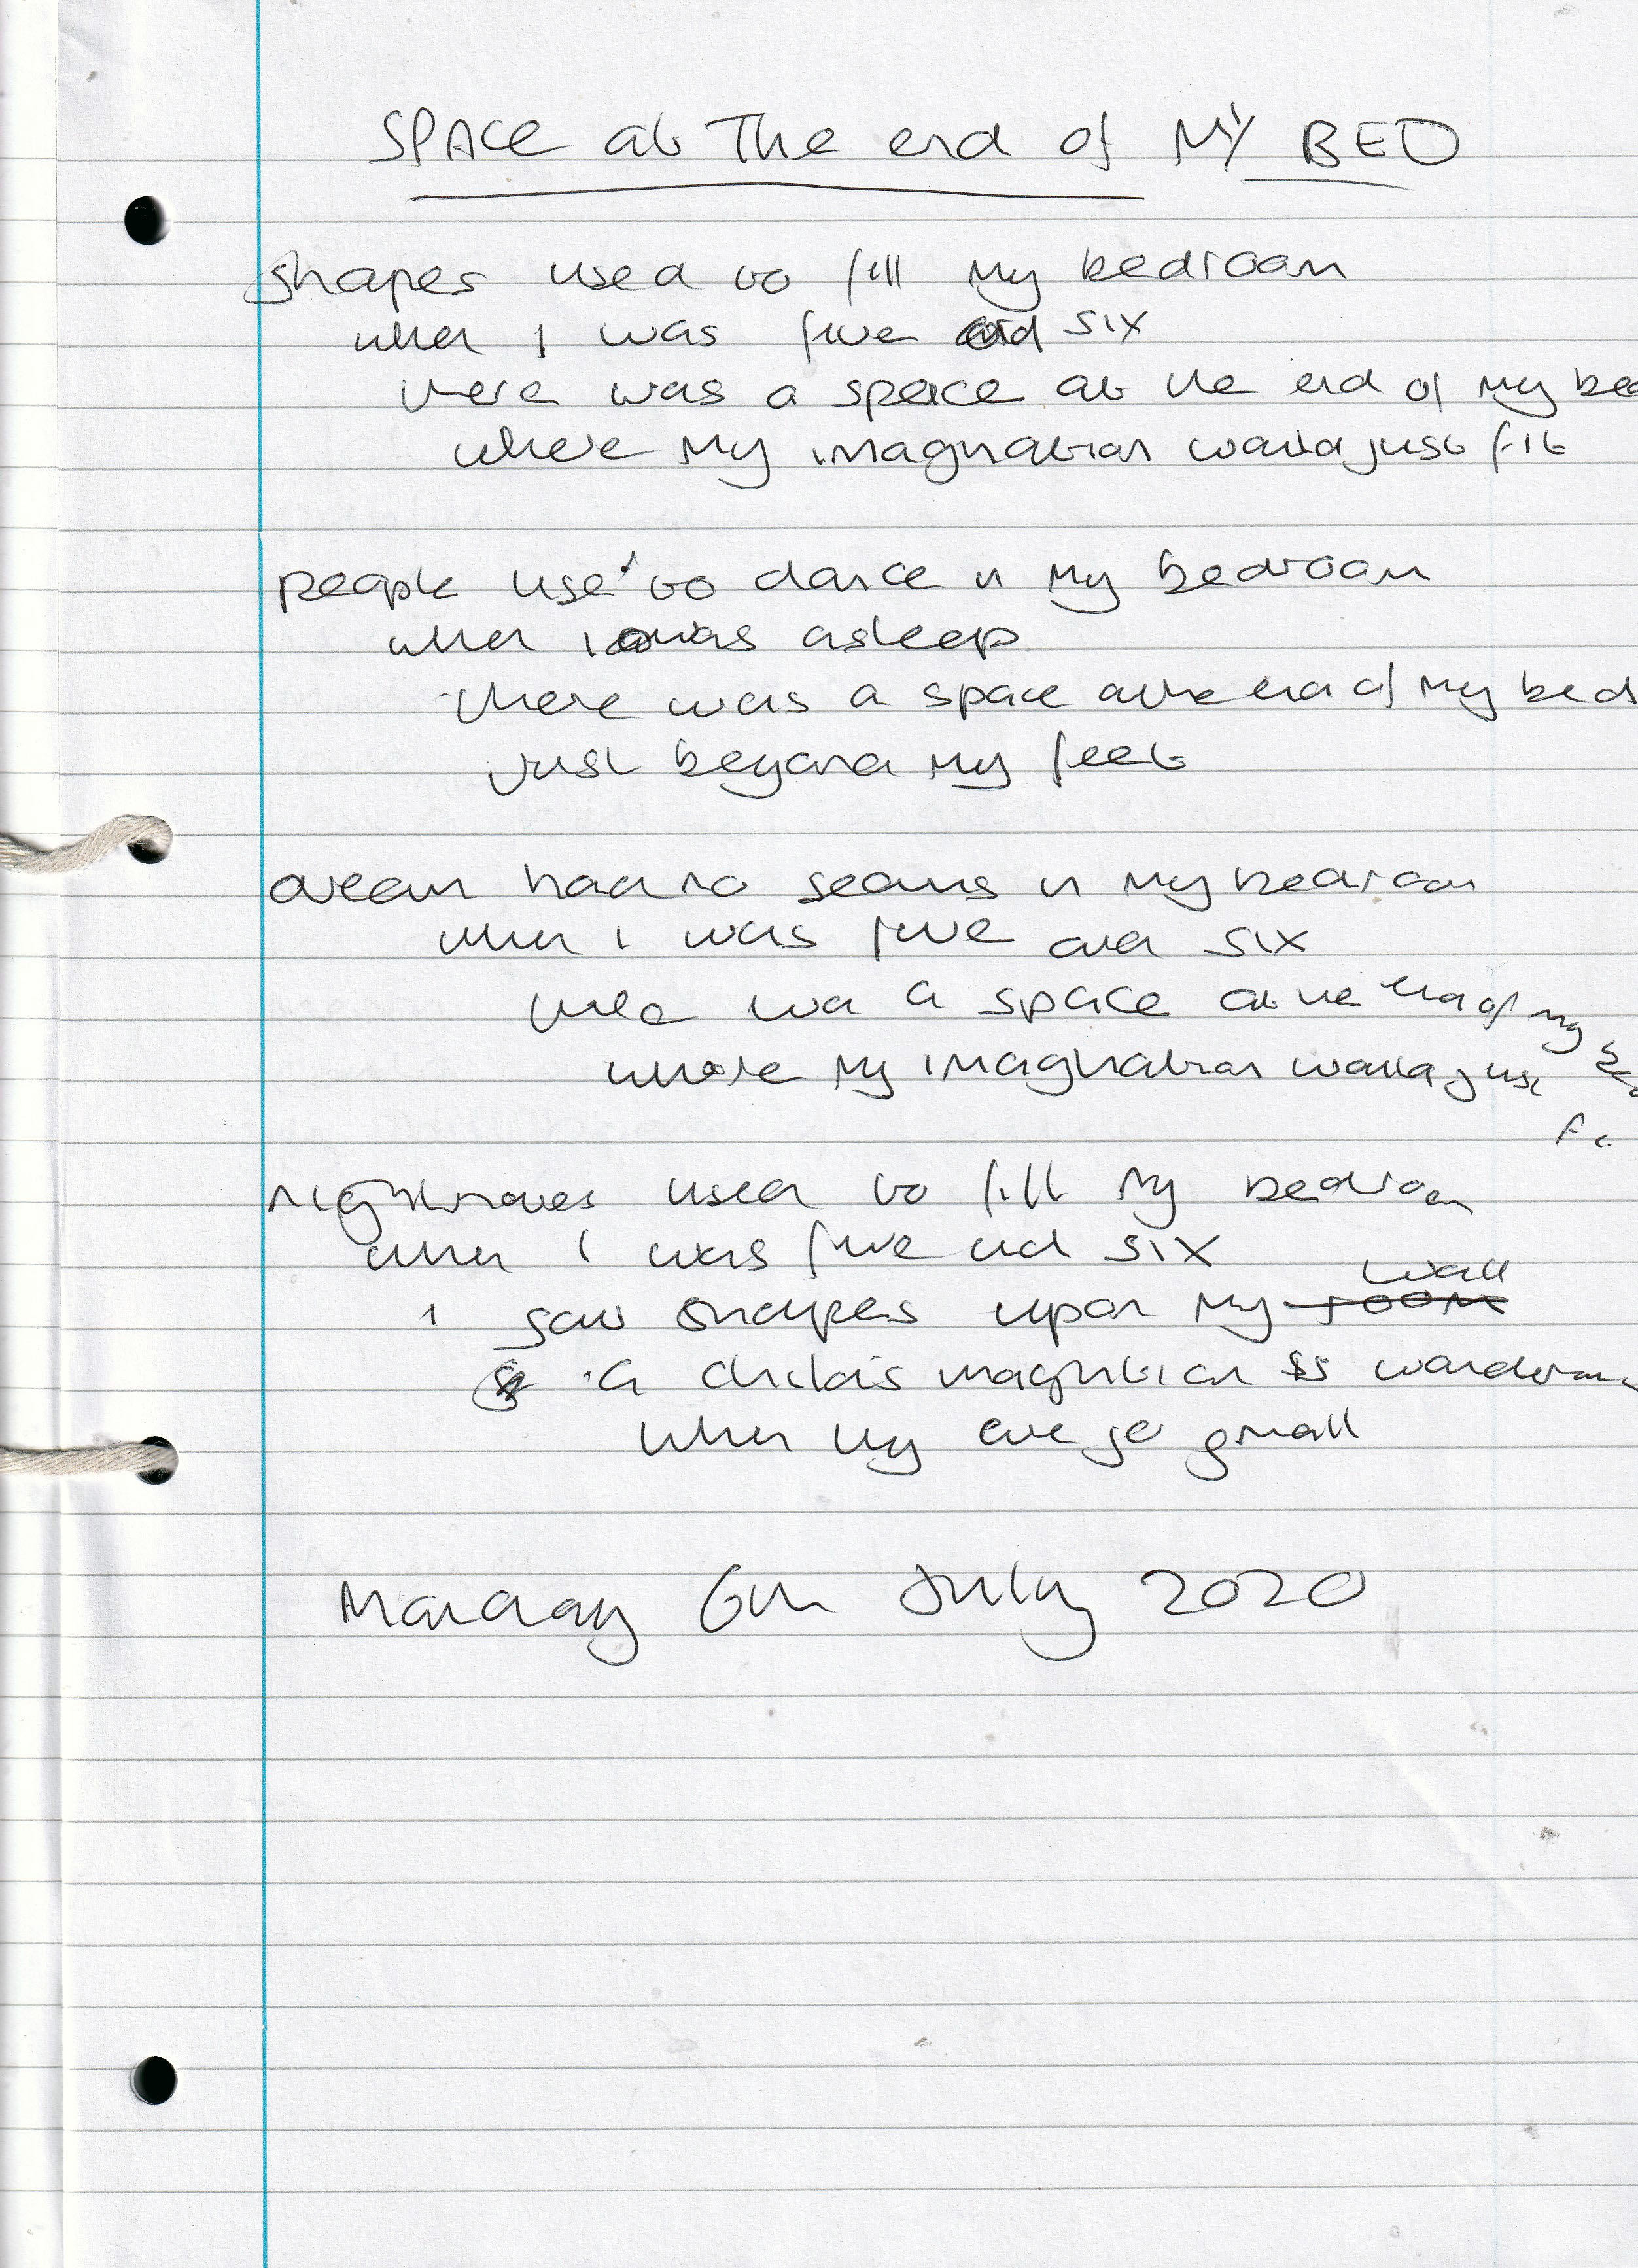 SPACE at The end of MY BED
shapes used to fill my bedroom
when I was five and six
there was a space at the end of my bed
where my imagination would just fit
people use to dance in my bedroom
when I was asleep
there was a space at the end of my bed
just beyond my feet
had no seams in my bedroom
when I was five and six
there was a space at the end of my bed
where my imagination would just
fit
nightmares used to fill my bedroom
when I was five and six
wall
I saw shapes upon my room
a child's imagination is
when they are so small
Monday 6th July 2020